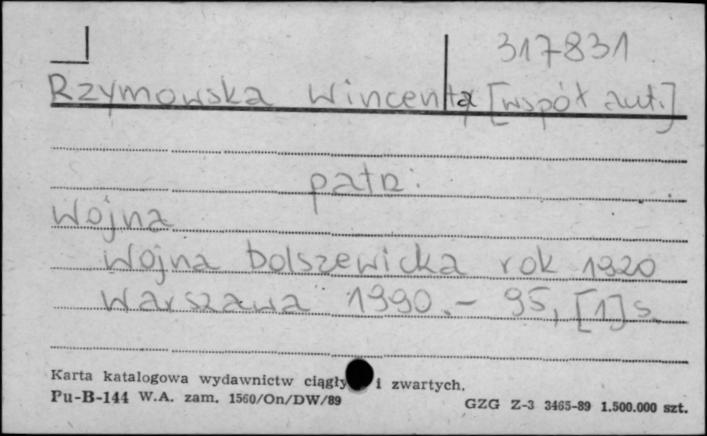 317831
Rzymowska Wincenta [współ aut.]
patrz:
Wojna
Wojna bolszewicka rok 1920
Warszawa 1990.- 95, [1] s.
Karta katalogowa wydawnictw ciągły i zwartych.
Pu-B-144 W.A. zam. 1560/On/DW/89
GZG Z-3 3465-89 1.500.000 szt.